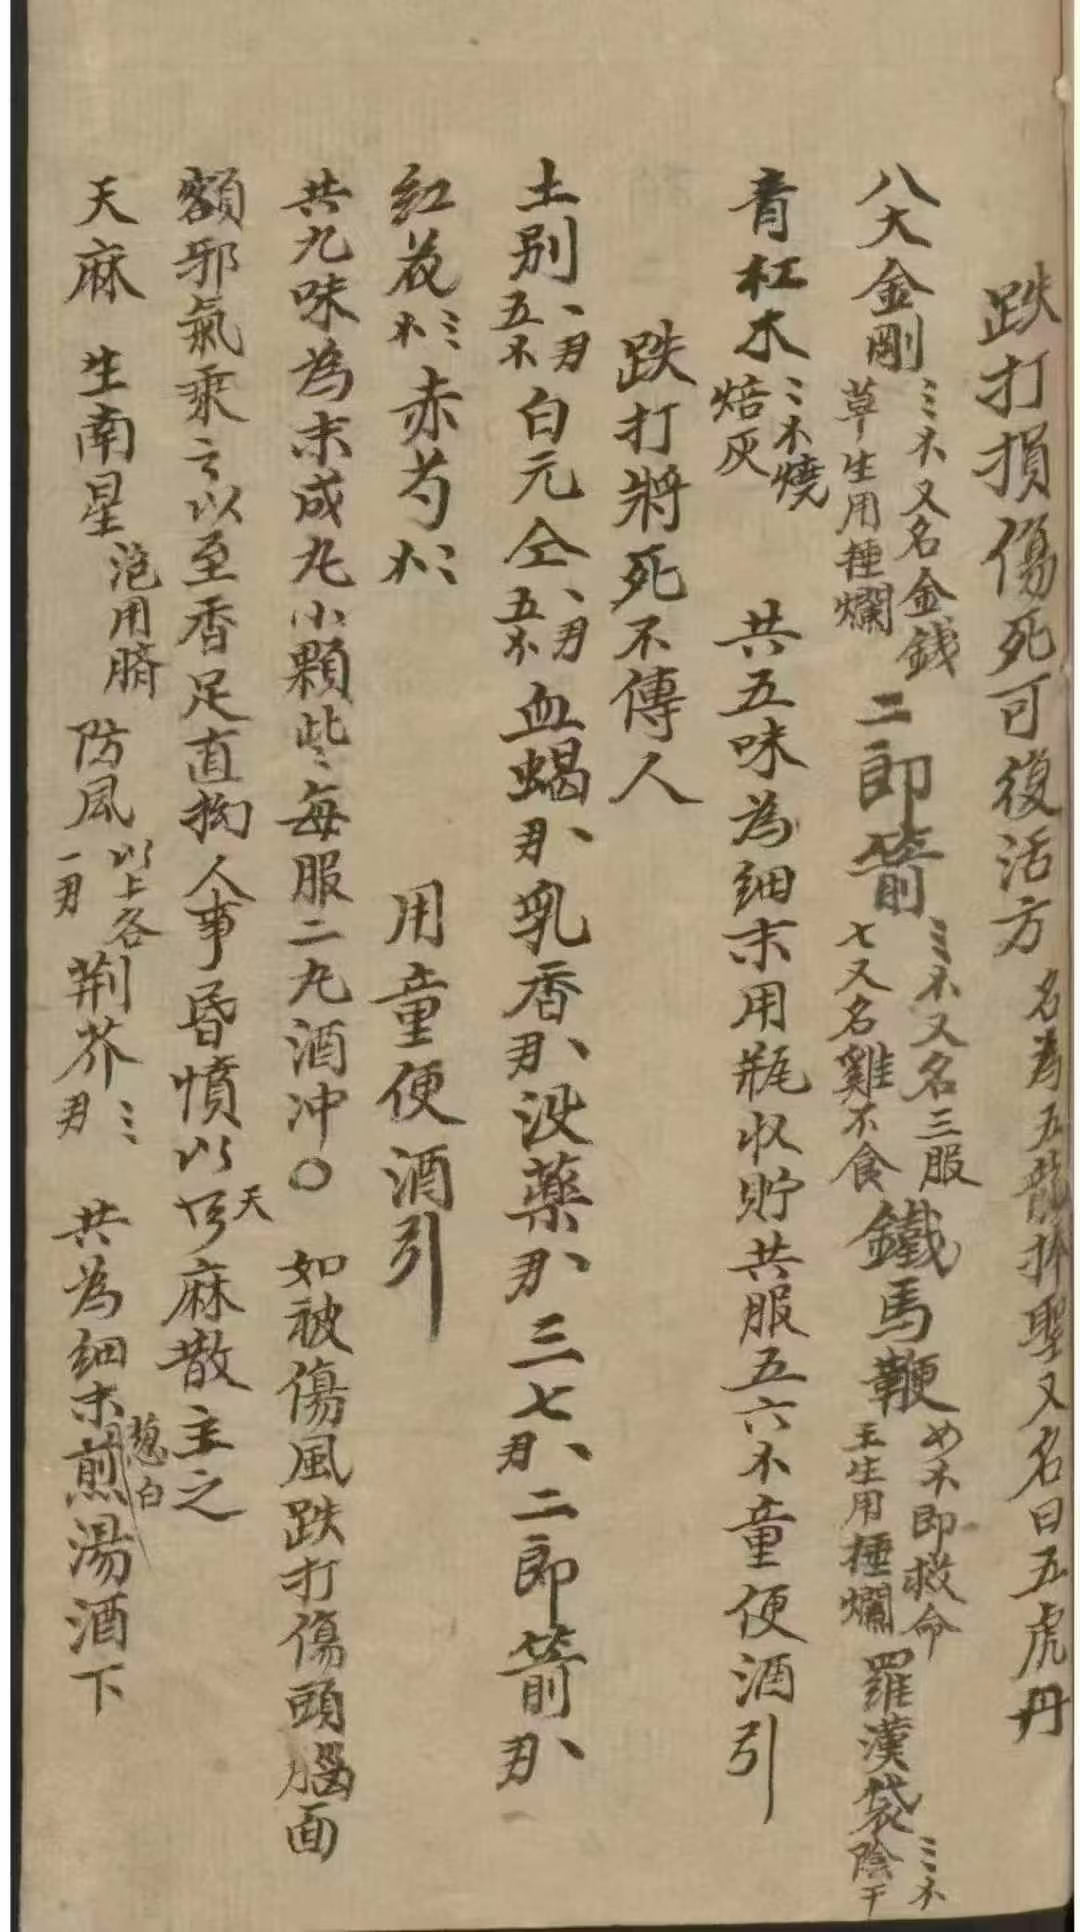 跌打損傷死可復活方 名為五龍 聖又名曰五虎丹
八大金剛 又名金錢草生用捶爛 二郎箭 又名三服七又名雞不食 鐵馬鞭 即救命王生用捶爛 羅漢袋 陰干
青杠木 燒焙灰 共五味為細末用瓶収貯共服五六 童便酒引
跌打將死不傳人
土別 白元 血蝎 乳香 没藥 三七 二郎箭
紅花 赤芍 用童便酒引
共九味為末成丸小顆些每服二丸酒冲〇 如被傷風跌打傷頭腦面
額邪氣乘之以至香足直拘人事昏憒以天麻散主之
天麻 生南星 泡用臍 防風 以上各一 荆芥 共為細末葱白煎湯酒下